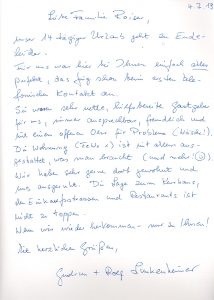 4.7.13
Liebe Familie Roiser,
unser 14 tägiger Urlaub geht zu Ende -
leider.
Für uns war hier bei Ihnen einfach alles
perfekt, das fing schon beim ersten tele-
fonischen Kontakt an.
Sie waren sehr nette, hilfsbereite Gastgeber
für uns, immer ansprechbar, freundlich und
mit einem offenen Ohr für Probleme (Wäsche!).
Die Wohnung (FeWo 2) ist mit allem aus-
gestattet, was man braucht (und mehr!☺).
Wir haben sehr gerne dort gewohnt und
uns ausgeruht. Die Lage zum Kurhaus,
den Einkaufsstrassen und Restaurants ist
nicht zu toppen.
Wenn wir wieder herkommen - nur zu Ihnen!
Die herzlichen Grüßen,
Gudrun + Rolf